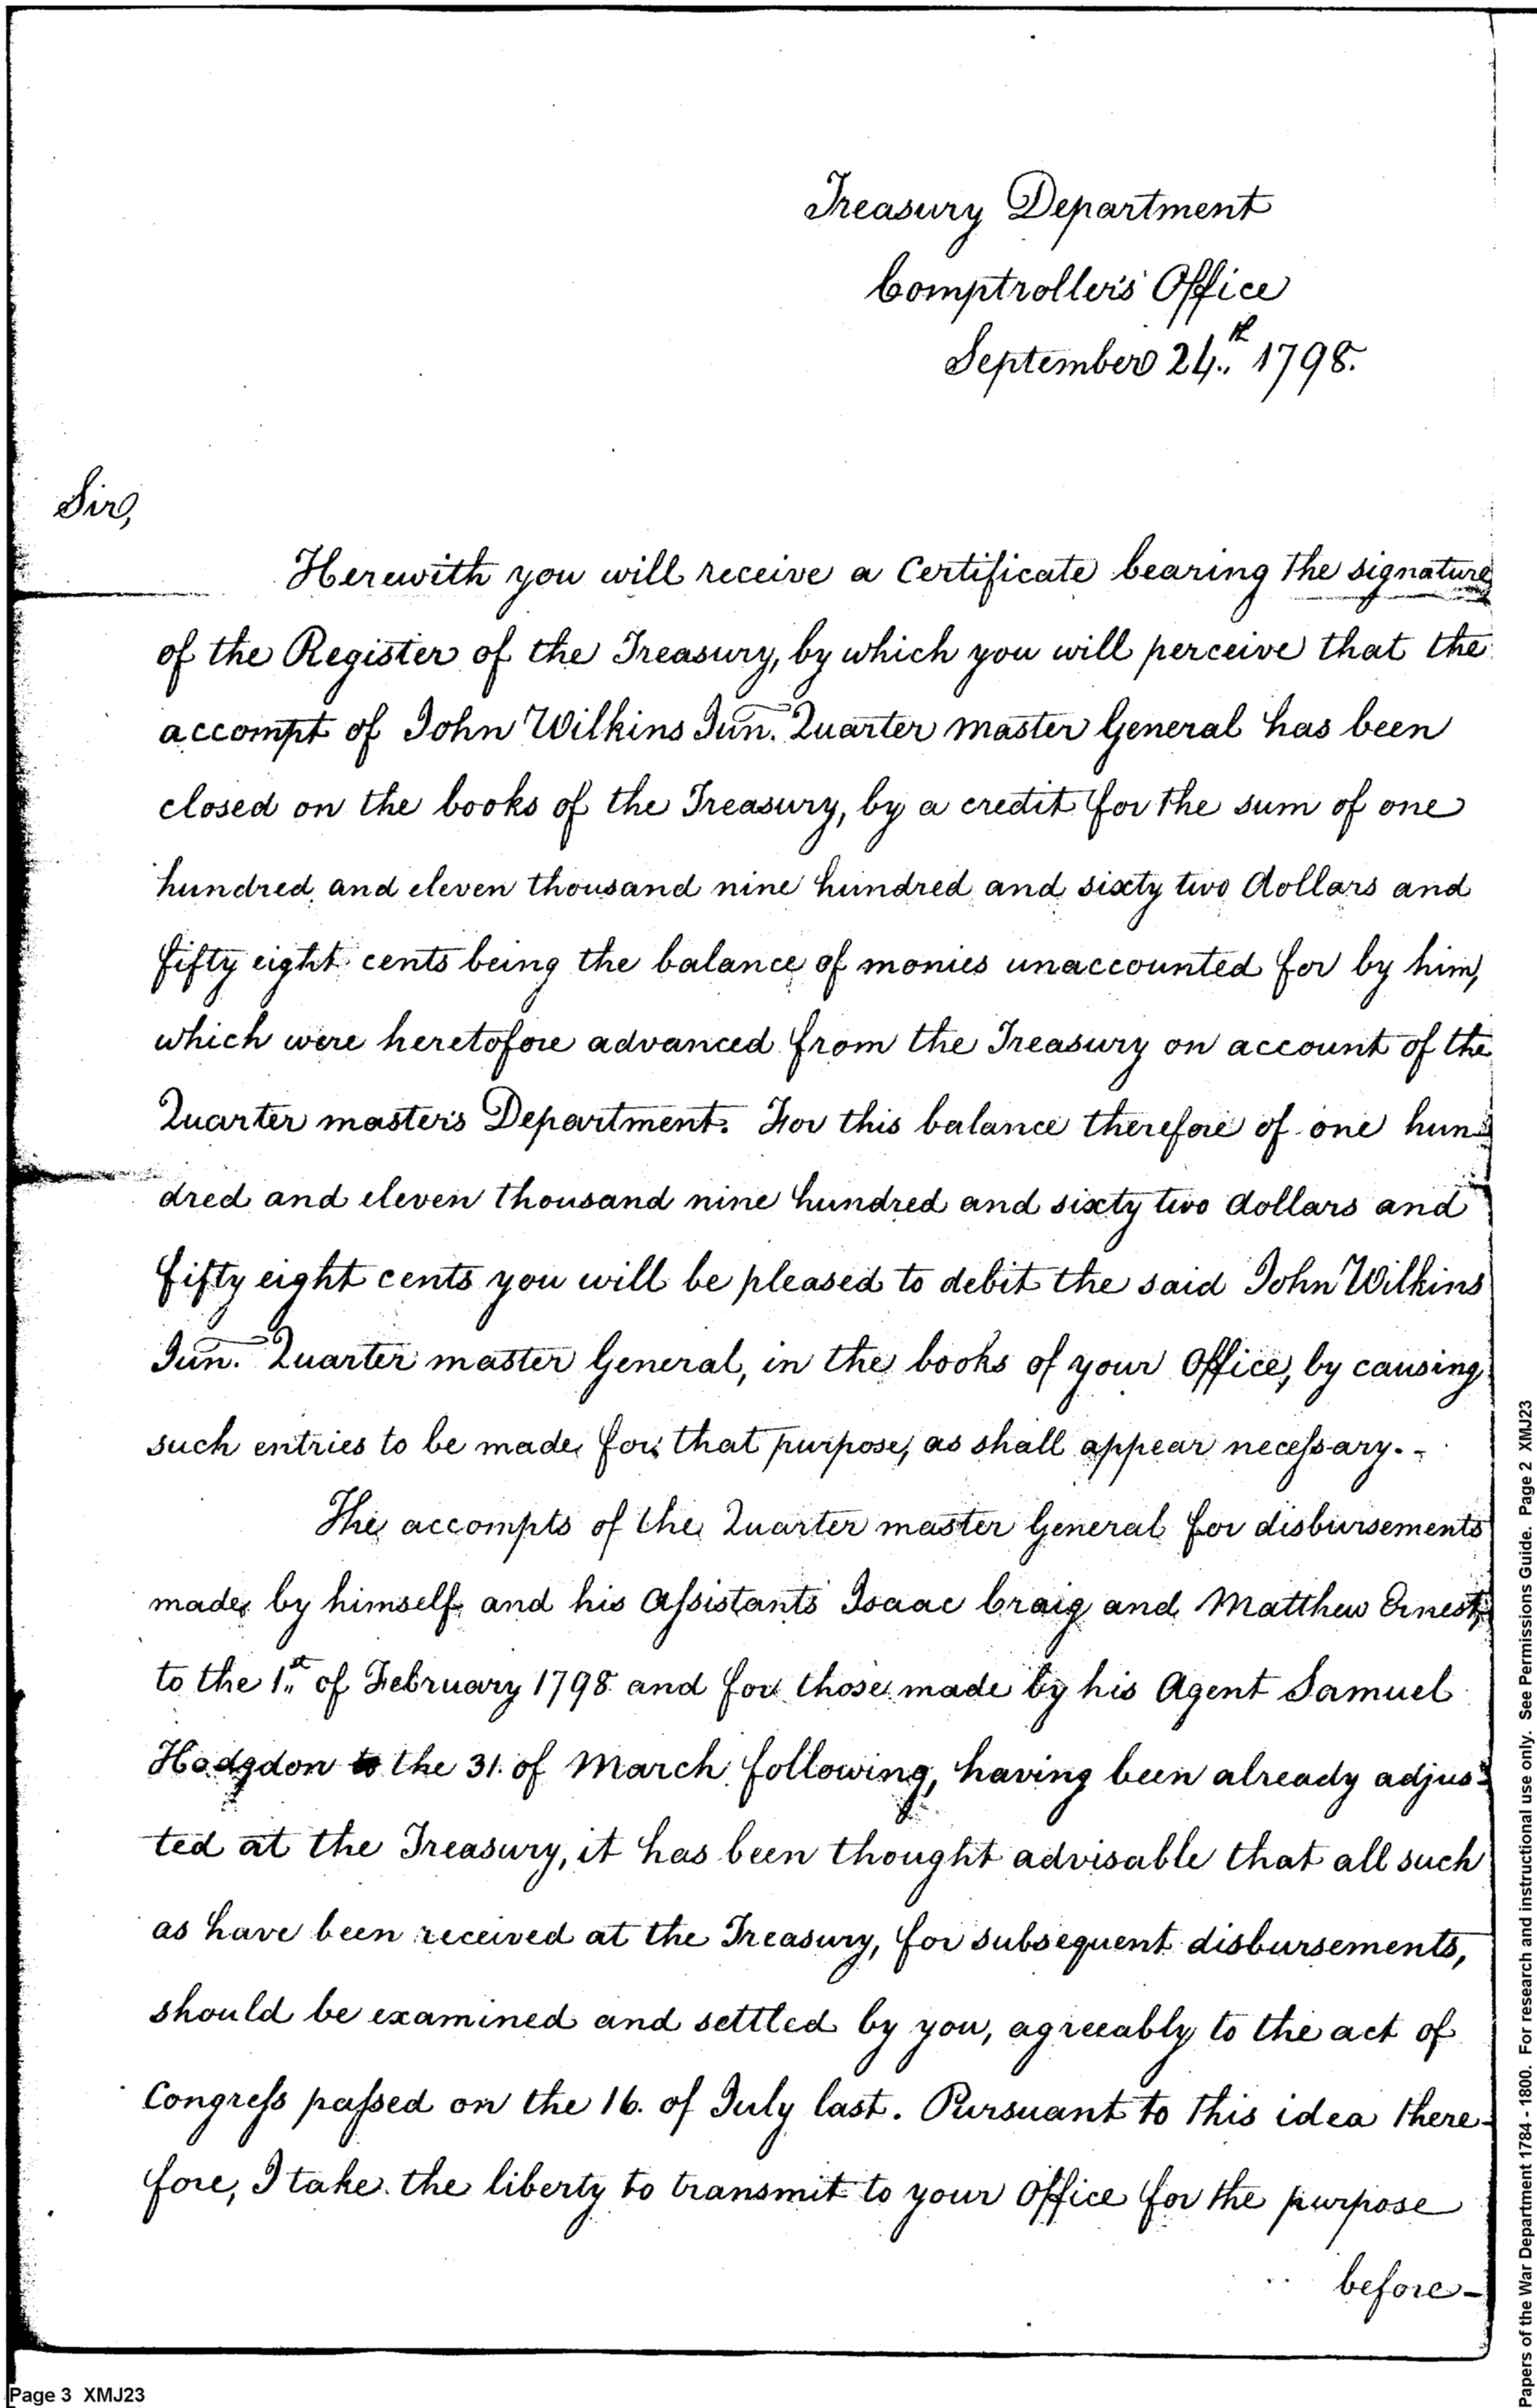 Treasury Department
Comptroller's Office
September 24th 1798.
Sir,
Herewith you will receive a Certificate bearing the signature
of the Register of the Treasury, by which you will perceive that the
accompt of John Wilkins Jun. Quarter master General has been
closed on the books of the Treasury, by a credit for the sum of one
hundred and eleven thousand nine hundred and sixty two dollars and
fifty eight cents being the balance of monies unaccounted for by him,
which were heretofore advanced from the Treasury on account of the
Quarter master's Department. For this balance therefore of one hun-
dred and eleven thousand nine hundred and sixty two dollars and
fifty eight cents you will be pleased to debit the said John Wilkins
Jun. Quarter master General, in the books of your Office, by causing
such entries to be made for that purpose, as shall appear necessary. -
The accompts of the Quarter master General for disbursements
made by himself and his Assistants Isaac Craig and Matthew Ernest,
to the 1st of February 1798 and for those made by his Agent Samuel
Hodgdon to the 31. of March following, having been already adjus-
ted at the Treasury, it has been thought advisable that all such
as have been received at the Treasury, for subsequent disbursements,
should be examined and settled by you, agreeably to the act of
Congress passed on the 16. of July last. Pursuant to this idea there-
fore, I take the liberty to transmit to your Office for the purpose
before-
Page 3 XMJ23
Papers of the War Department 1784 - 1800. For research and instructional use only. See Permissions Guide. Page 2 XMJ23